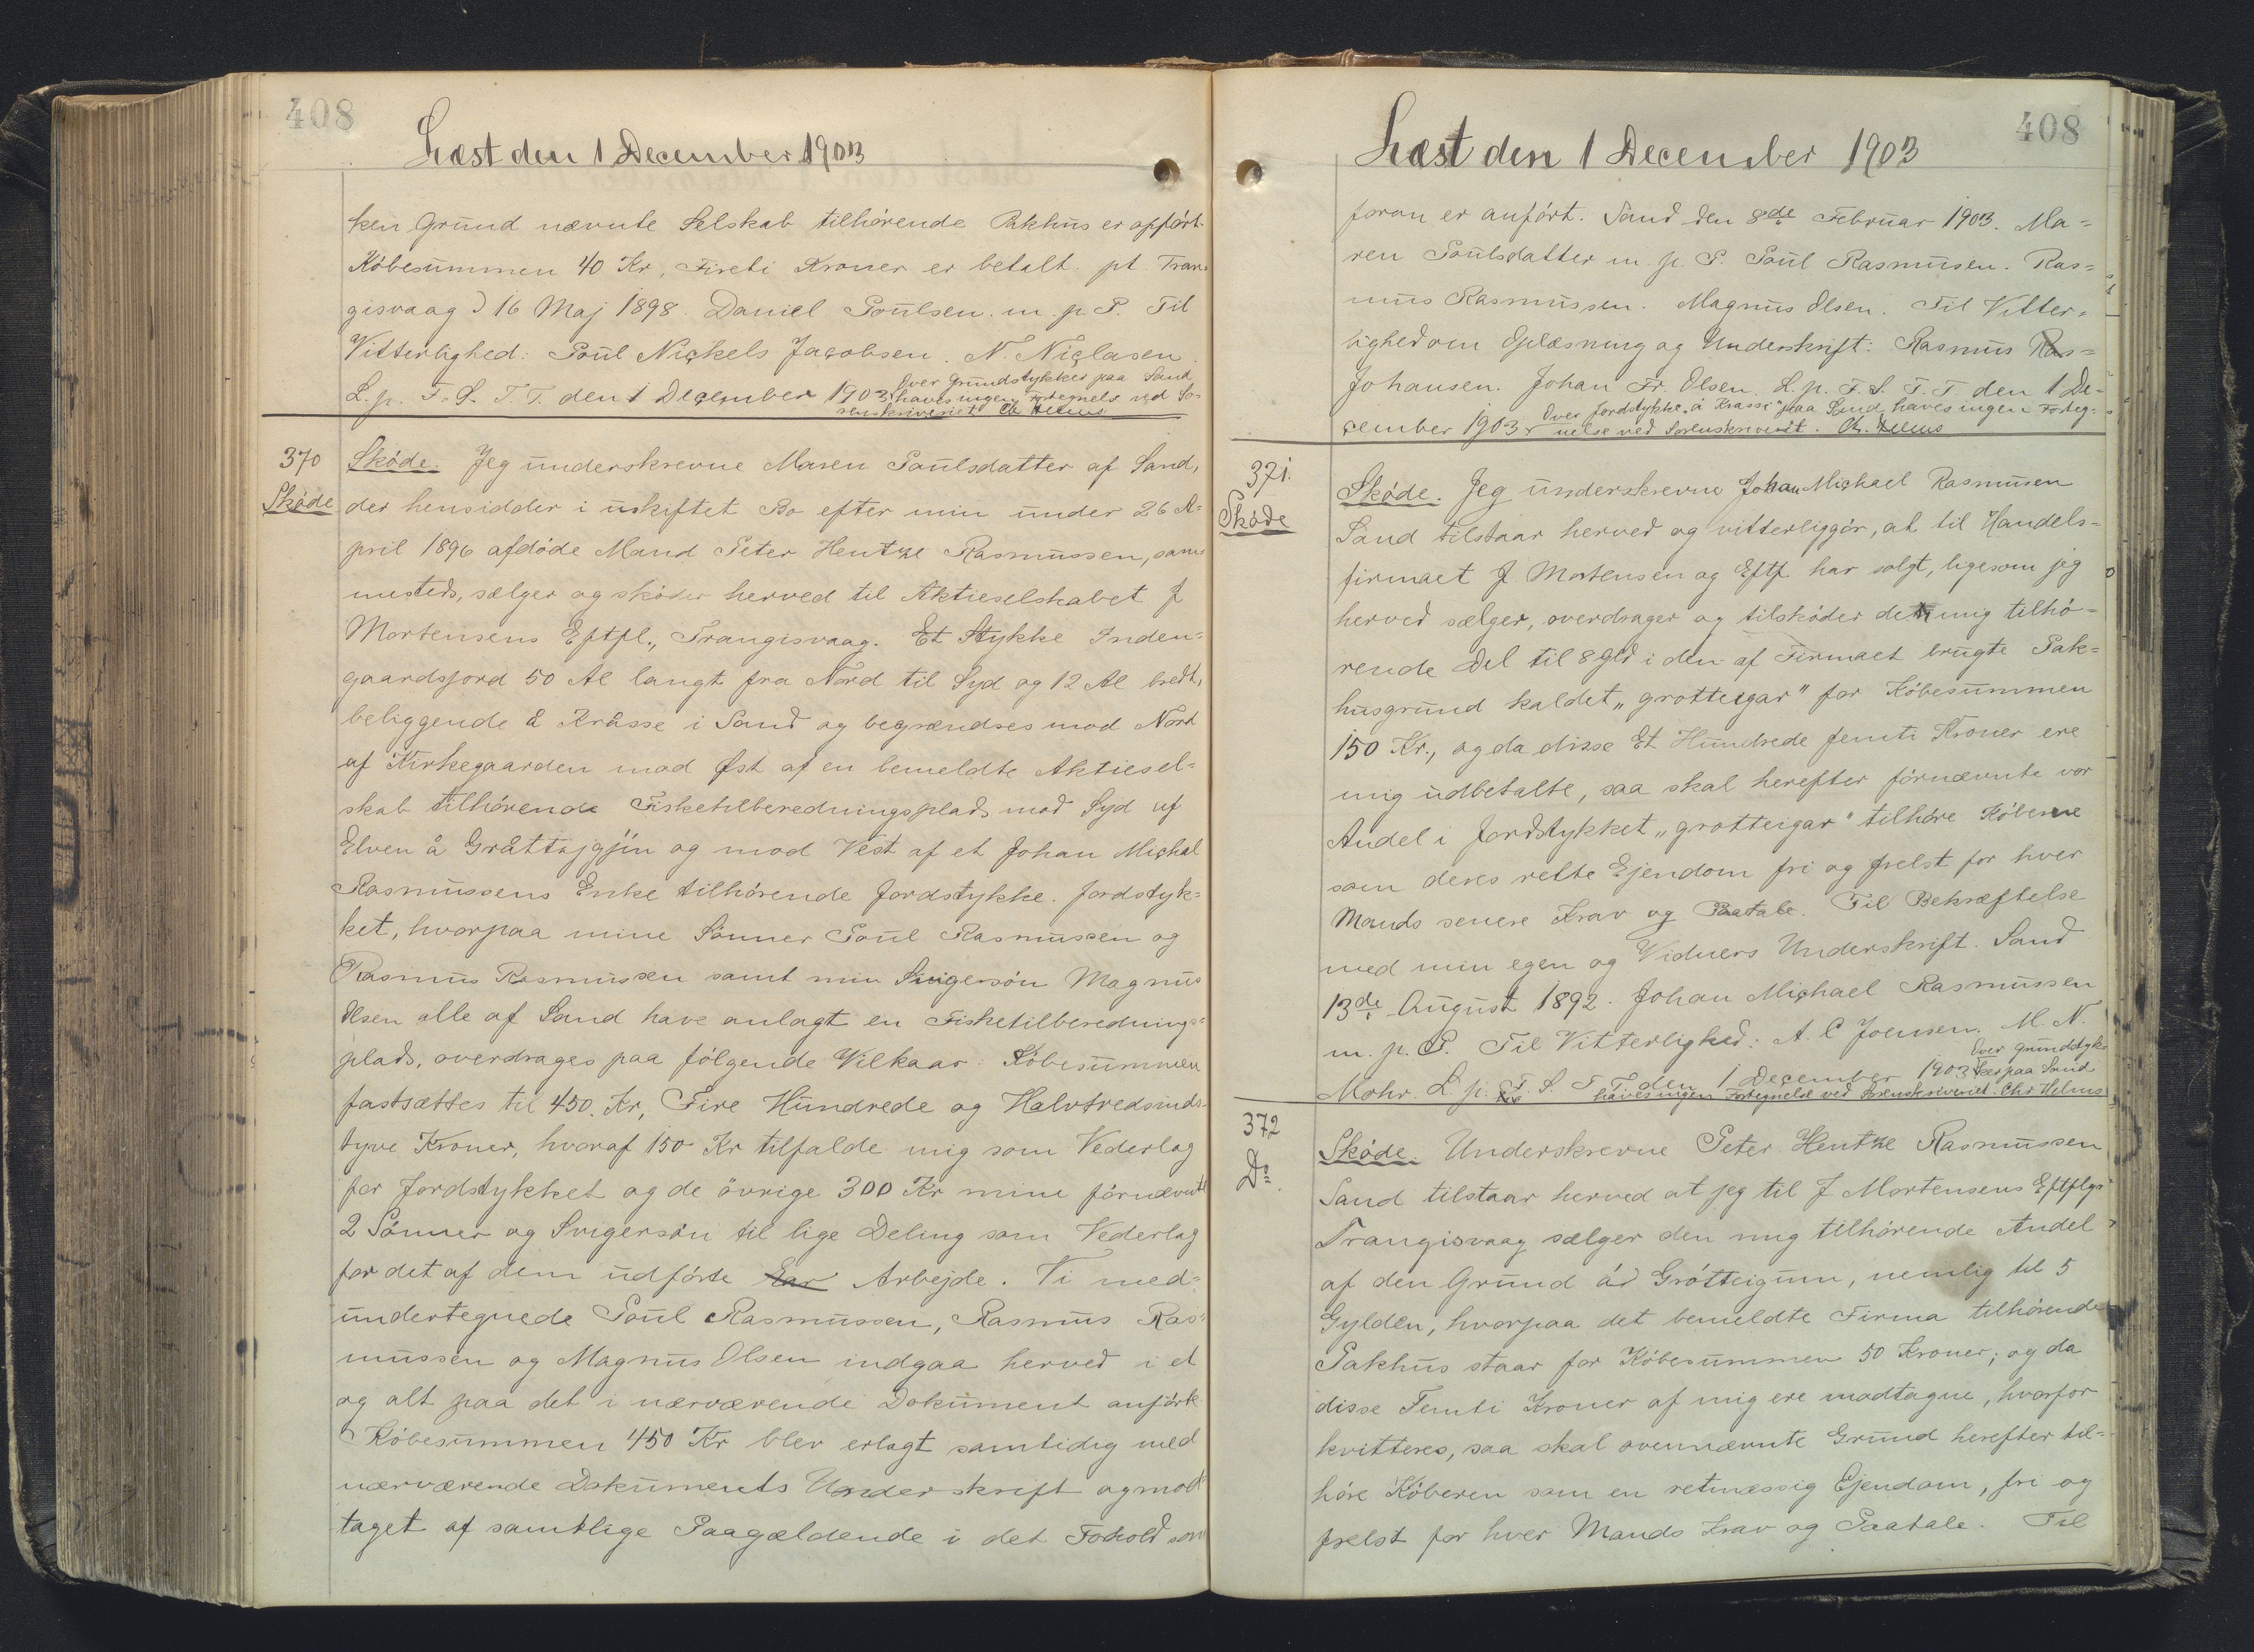 408
Læst den 1 December 1903
ken Grund nævnte Selskab tilhørende Pakhus er opført.
Købesummen 40 Kr, Fireti Kroner er betalt. pt Tran-
gisvaag d 16 Maj 1898. Daniel Poulsen. m. p. P. Til
Vitterlighed: Poul Nickels Jacobsen. N. Niclasen.
L. p. F. S. T. T. den 1 December 1903. Over Grundstykker paa Sand
haves ingen Fortegnels ved So-
renskriveriet Ch Helms
370
Skøde
Skøde. Jeg underskrevne Maren Poulsdatter af Sand,
der hensidder i uskiftet Bo efter min under 26 A-
pril 1896 afdøde Mand Peter Hentze Rasmussen, sam-
mesteds, sælger og skøder herved til Aktieselskabet J
Mortensens Eftfl., Trangisvaag. Et Stykke Inden-
gaardsjord 50 Al langt fra Nord til Syd og 12 Al bredt,
beliggende å Kråsse i Sand og begrændses mod Nord
af Kirkegaarden mod Øst af en bemeldte Aktiesel-
skab tilhørende Fisketilberedningsplads mod Syd af
Elven å Gråttajgjin og mod Vest af et Johan Michal
Rasmussens Enke tilhørende Jordstykke. Jordstyk-
ket, hvorpaa mine Sønner Poul Rasmussen og
Rasmus Rasmussen samt min Svigersøn Magnus
Olsen alle af Sand have anlagt en Fisketilberednings-
plads, overdrages paa følgende Vilkaar: Købesummen
fastsættes til 450. Kr, Fire Hundrede og Halvtredsinds-
tyve Kroner, hvoraf 150 Kr tilfalde mig som Vederlag
for Jordstykket og de øvrige 300 Kr mine førnævnte
2 Sønner og Svigersøn til lige Deling som Vederlag
for det af dem udførte Arbejde. Vi med-
undertegnede Poul Rasmussen, Rasmus Ras-
mussen og Magnus Olsen indgaa herved i et
og alt paa det i nærværende Dokument anførte
Købesummen 450 Kr blev erlagt samtidig med
nærværende Dokuments Underskrift og mod-
taget af samtlige Paagældende i det Fohold som
408
Læst den 1 December 1903
foran er anført. Sand den 8de Februar 1903. Ma-
ren Poulsdatter m. p. P. Poul Rasmusen. Ras-
mus Rasmussen. Magnus Olsen. Til Vitter-
lighed om Oplæsning og Underskrift: Rasmus Ras-
Johansen. Johan Fr. Olsen. L. p. F. S. T. T den 1 De-
cember 1903. Over Jordstykke "å Krasse" paa Sand haves ingen Forteg-
nelse ved Sorenskriveriet. Ch. Helms
371.
Skøde
Skøde. Jeg underskrevne Johan Michael Rasmusen
Sand tilstaar herved og vitterliggør, at til Handels-
firmaet J. Mortensen og Eftf har solgt, ligesom jeg
herved sælger, overdrager og tilskøder den mig tilhø-
rende Del til 8 Gld i den af Firmaet brugte Pak-
husgrund kaldet "grotteigar" for Købesummen
150 Kr., og da disse Et Hundrede femti Kroner ere
mig udbetalte, saa skal herefter førnævnte vor
Andel i Jordstykket "grotteigar" tilhøre Køberne
som deres rette Ejendom fri og frelst for hver
Mands senere Krav og Paatale. Til Bekræftelse
med min egen og Vidners Underskrift. Sand
13de August 1892. Johan Michael Rasmussen
m. p. P. Til Vitterlighed: A. C Joensen. M. N.
Mohr. L. p. F. S T T. den 1 December 1903 Over Grundstyk-
ker paa Sand
haves ingen Fortegnelse ved Sorenskriveriet. Chr Helms
372
Do.
Skøde. Underskrevne Peter Hentze Rasmussen
Sand tilstaar herved at jeg til J Mortensens Eftflgr
Trangisvaag sælger den mig tilhørende Andel
af den Grund ád Gróttigum, nemlig til 5
Gylden, hvorpaa det bemeldte Firma tilhørende
Pakhus staar for Købesummen 50 Kroner; og da
disse Femti Kroner af mig ere modtagne, hvorfor
kvitteres, saa skal ovennævnte Grund herefter til-
høre Køberen som en retmæssig Ejendom, fri og
frelst for hver Mands Krav og Paatale. Til